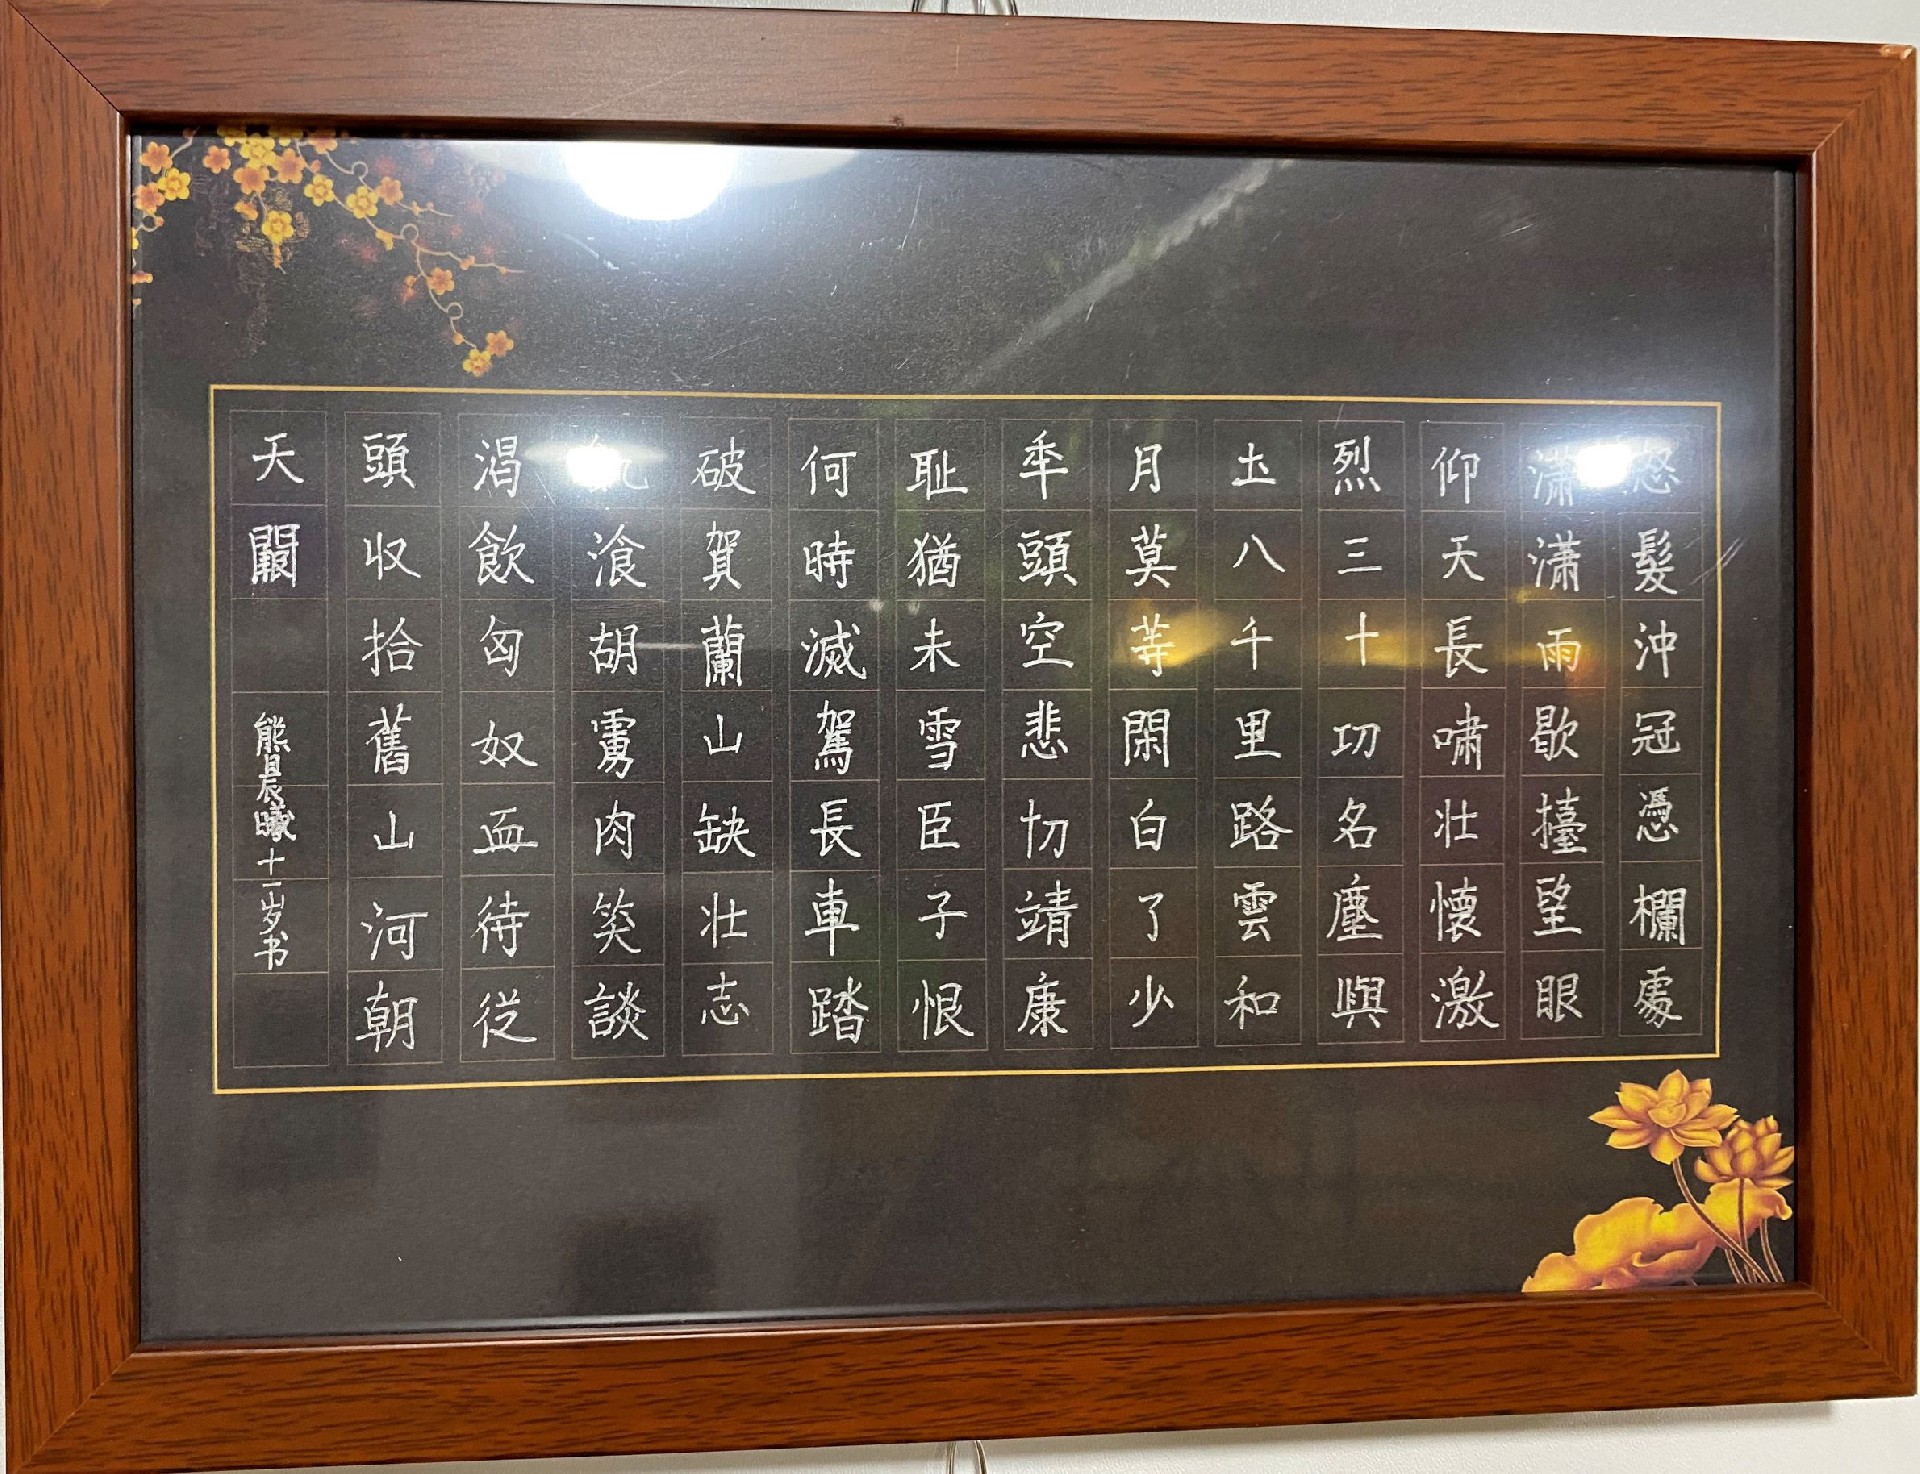 怒髮沖冠憑欄處
潇潇雨歇擡望眼
仰天長嘯壮懷激
烈三十功名塵與
土八千里路雲和
月莫等閑白了少
年頭空悲切靖康
耻猶未雪臣子恨
何時滅駕長車踏
破賀蘭山缺壮志
湌胡虜肉笑談
渴飲匈奴血待從
頭収拾舊山河朝
天闕
熊晨曦十一岁书